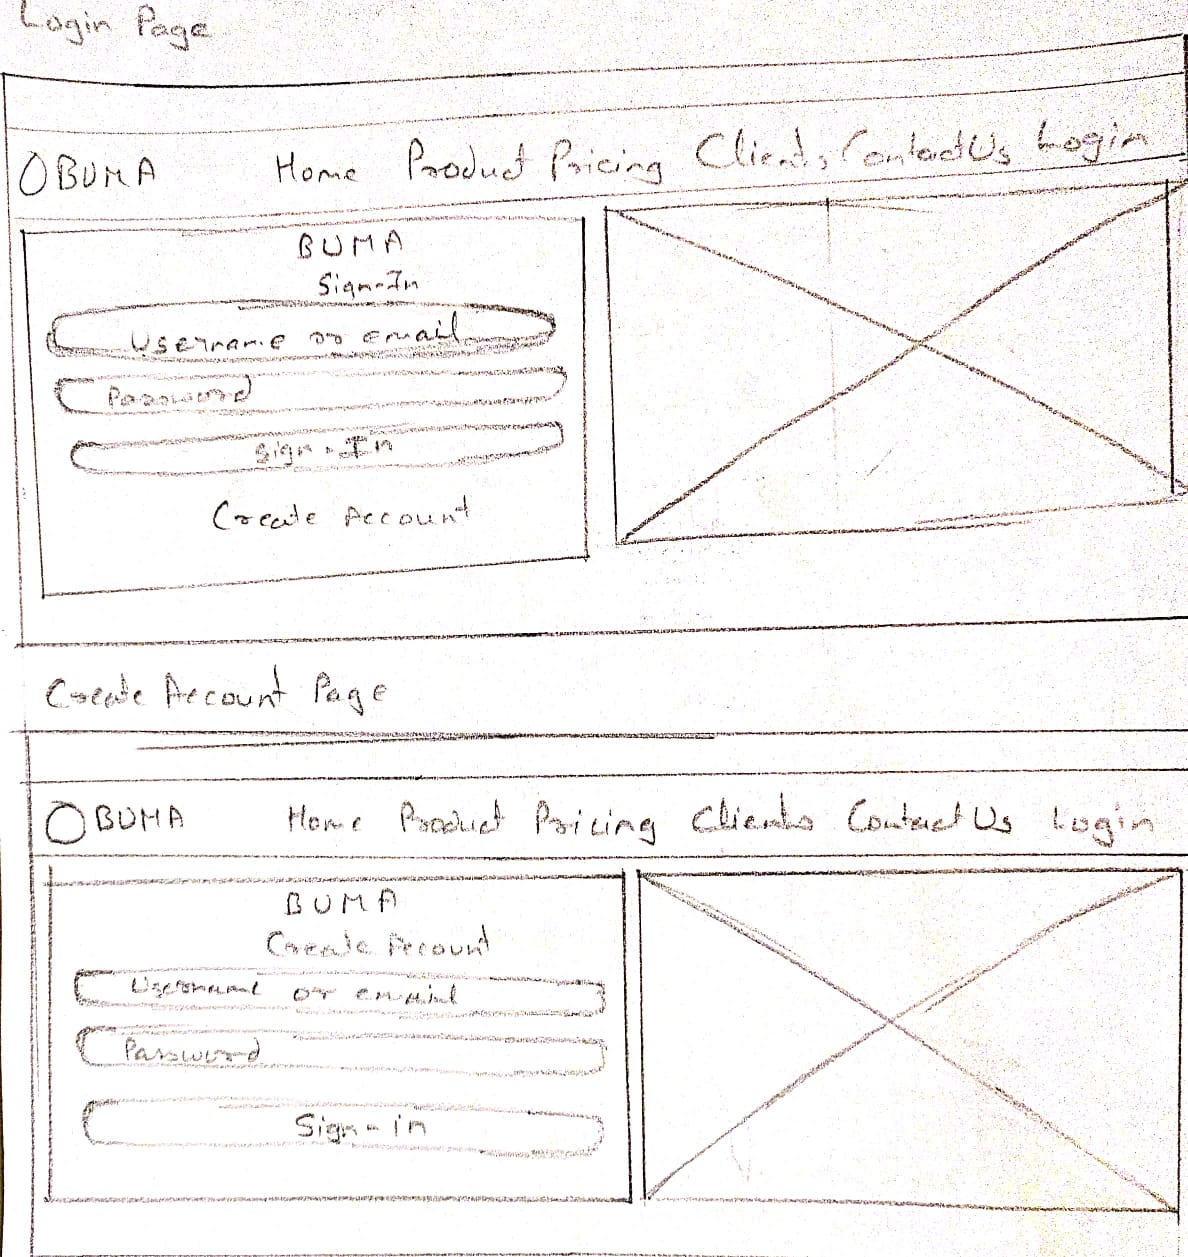 Login Page
BUMA Home Product Pricing Clients Contact Us Login
BUMA
Sign-In
Username or email
Password
Sign-In
Create Account
Create Account Page
BUMA Home Product Pricing Clients Contact Us Login
BUMA
Create Account
Username or email
Password
Sign-in